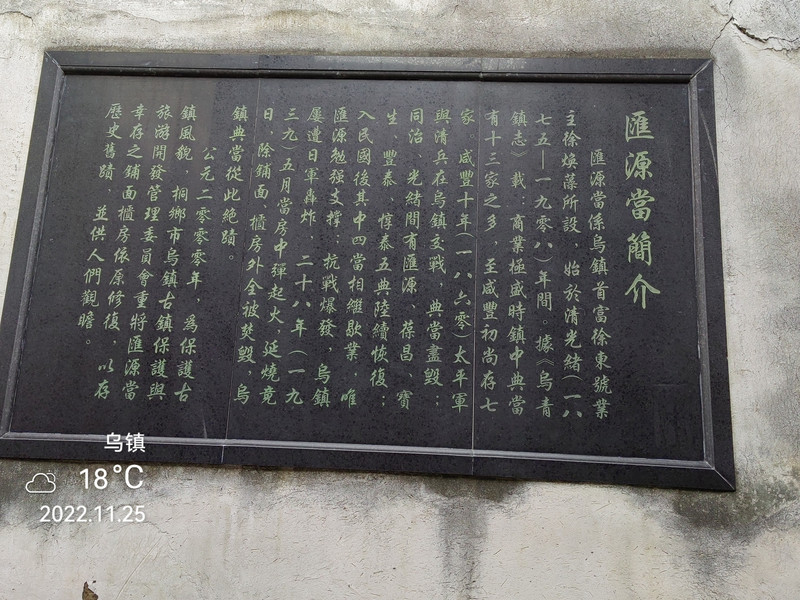 匯源當簡介
匯源當係烏鎮首富徐東號業
主徐煥藻所設，始於清光緒（一八
七五—一九零八）年間。據《烏青
鎮志》載：商業極盛時鎮中典當
有十三家之多，至咸豐初尚存七
家，咸豐十年（一八六零）太平軍
與清兵在烏鎮交戰，典當盡毀；
同治、光緒間有匯源、葆昌、寶
生、豐泰、惇泰五典陸續恢復；
入民國後其中四當相繼歇業，唯
匯源勉强支撐；抗戰爆發，烏鎮
屢遭日軍轟炸，二十八年（一九
三九）五月當房中彈起火，延燒竟
日，除鋪面、櫃房外全被焚毀，烏
鎮典當從此絕蹟。
公元二零零零年，爲保護古
鎮風貌，桐鄉市烏鎮古鎮保護與
旅游開發管理委員會重將匯源當
幸存之鋪面櫃房依原修復，以存
歷史舊蹟，並供人們觀瞻。
乌镇
18°C
2022.11.25